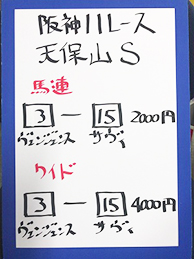 阪神11レース
天保山S
馬連
3 ー 15 2000円
ヴェンジェンス サヴィ
ワイド
3 ー 15 4000円
ヴェンジェンス サヴィ